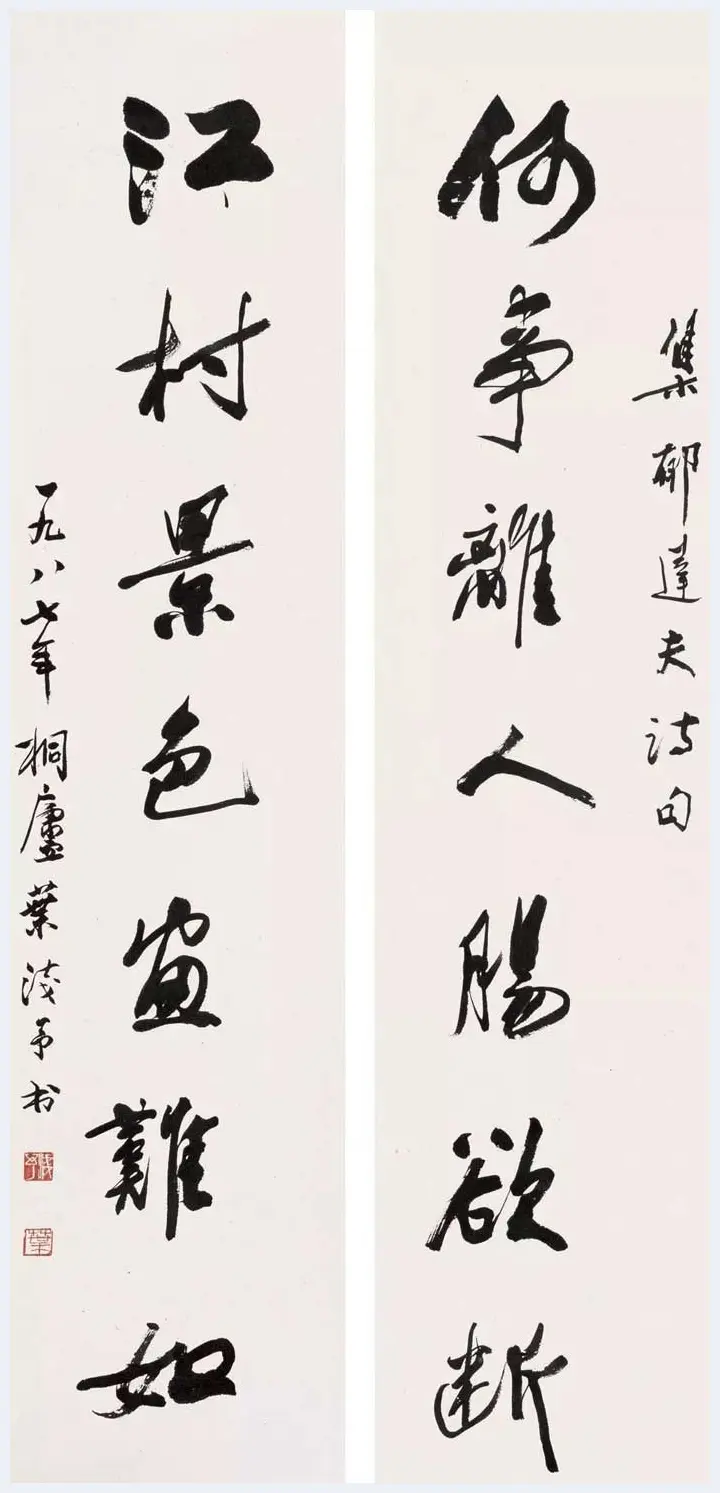 集郁達夫诗句
何事離人腸欲断
江村景色畫難如
一九八七年桐廬葉淺予书
淺予
葉